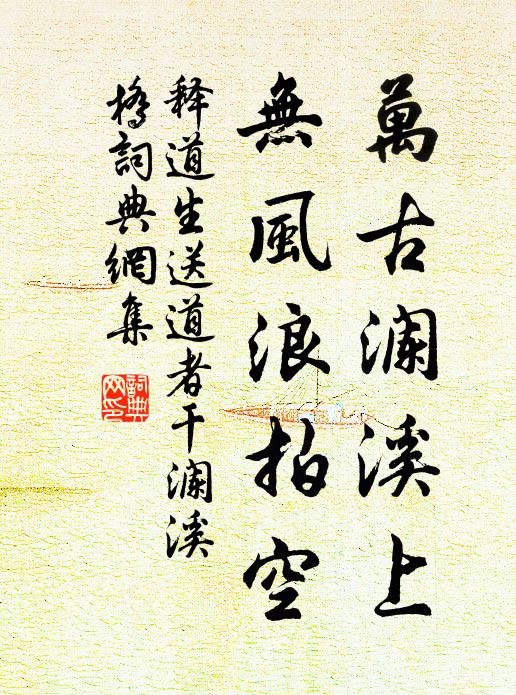 萬古瀾溪上
無風浪拍空
释道生送道者干瀾溪
橋詞典網集
詞典網印